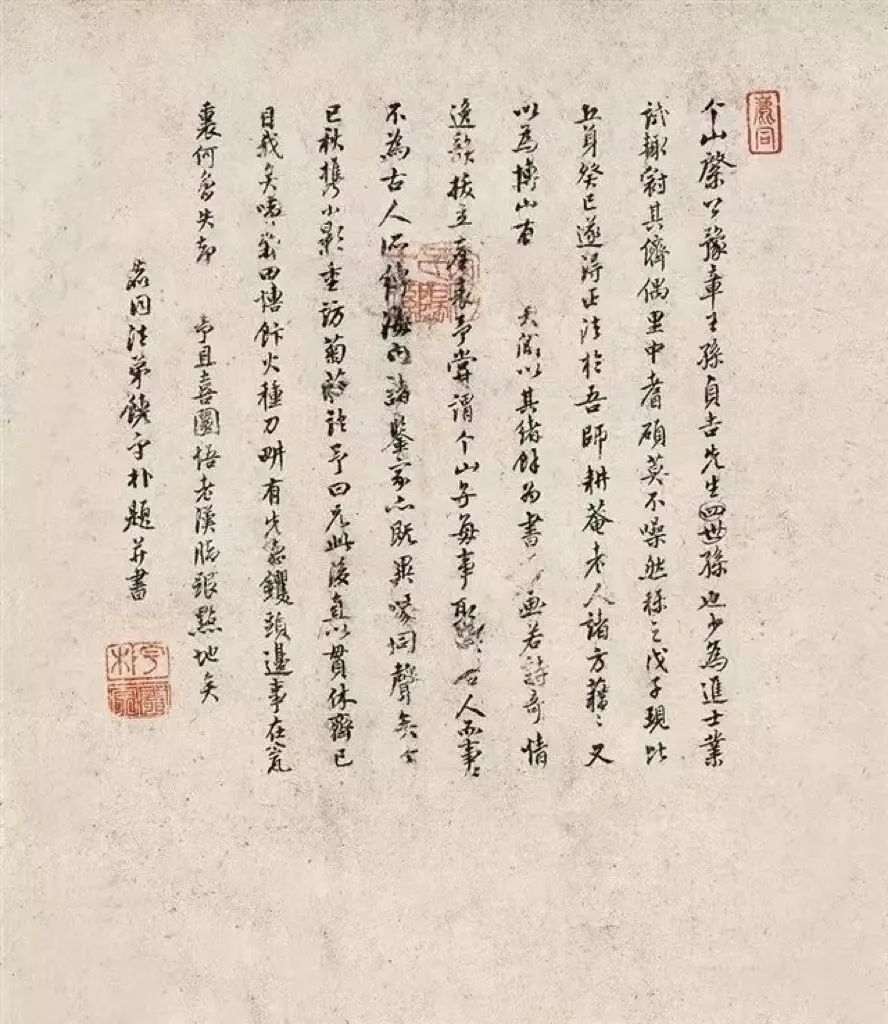 个山綮公豫章王孫貞吉先生四世孫也少為進士業
試輒冠其儕偶里中耆碩莫不噪然稱之戊子現比
丘身癸巳遂得正法於吾師耕菴老人諸方藉〻又
以為博山有 矣間以其緒餘為書 画若詩奇情
逸韻拔立塵表予嘗謂个山子每事取 古人而事〻
不為古人所縛海內諸鑒家亦既異喙同聲矣
巳秋攜小影重訪菊莊語予曰兄此後直以貫休齊己
目我矣咦 田博飰火種刀畊有先德钁頭邊事在瓮
裏何曾失却 予且喜圜悟老漢脚跟點地矣
法弟饒宇朴題并書